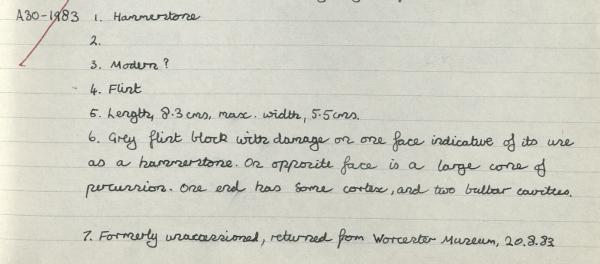 A30-1983 1. Hammerstone
2.
3. Modern?
4. Flint
5. Length, 8.3 cms, max. width, 5.5cms.
6. Grey flint block with damage on one face indicative of its use
as a hammerstone. On opposite face is a large cone of
percussion. One end has some cortex, and two bulbar cavities.
7. Formerly unaccessioned, returned from Worcester Museum, 20.8.83